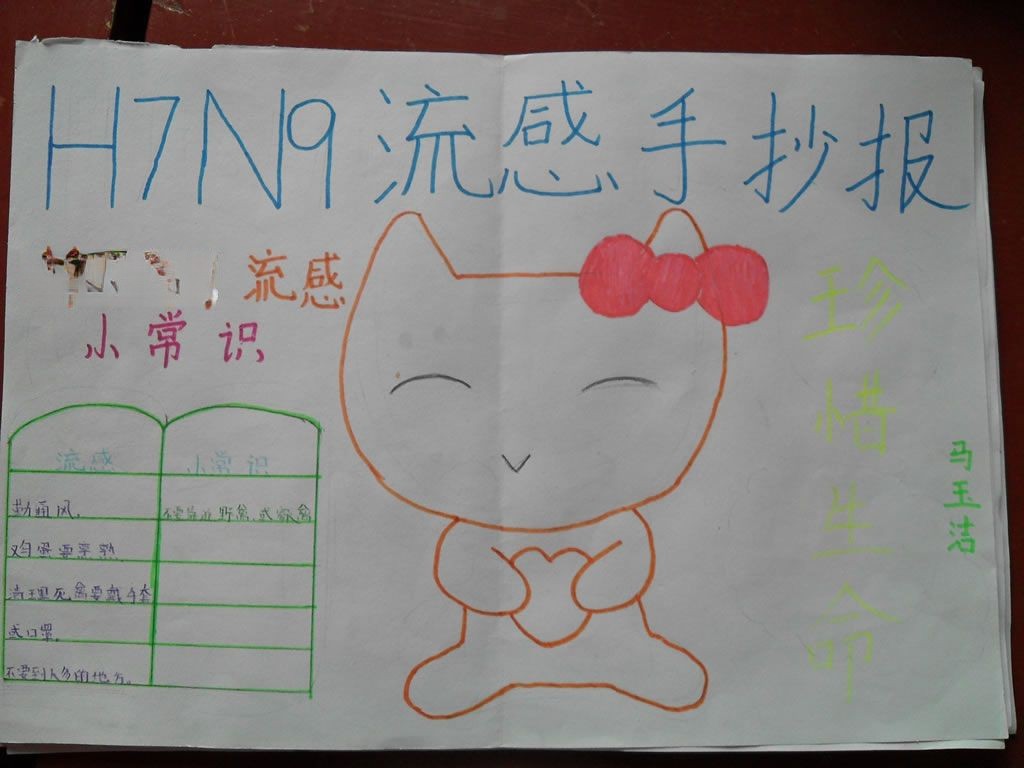 H7N9流感手抄报
流感
小常识
流感 小常识
勤通风。
不要靠近野禽或家禽
鸡蛋要煮熟
清理死禽要戴手套
或口罩。
不要到人多的地方。
珍惜生命
马玉洁